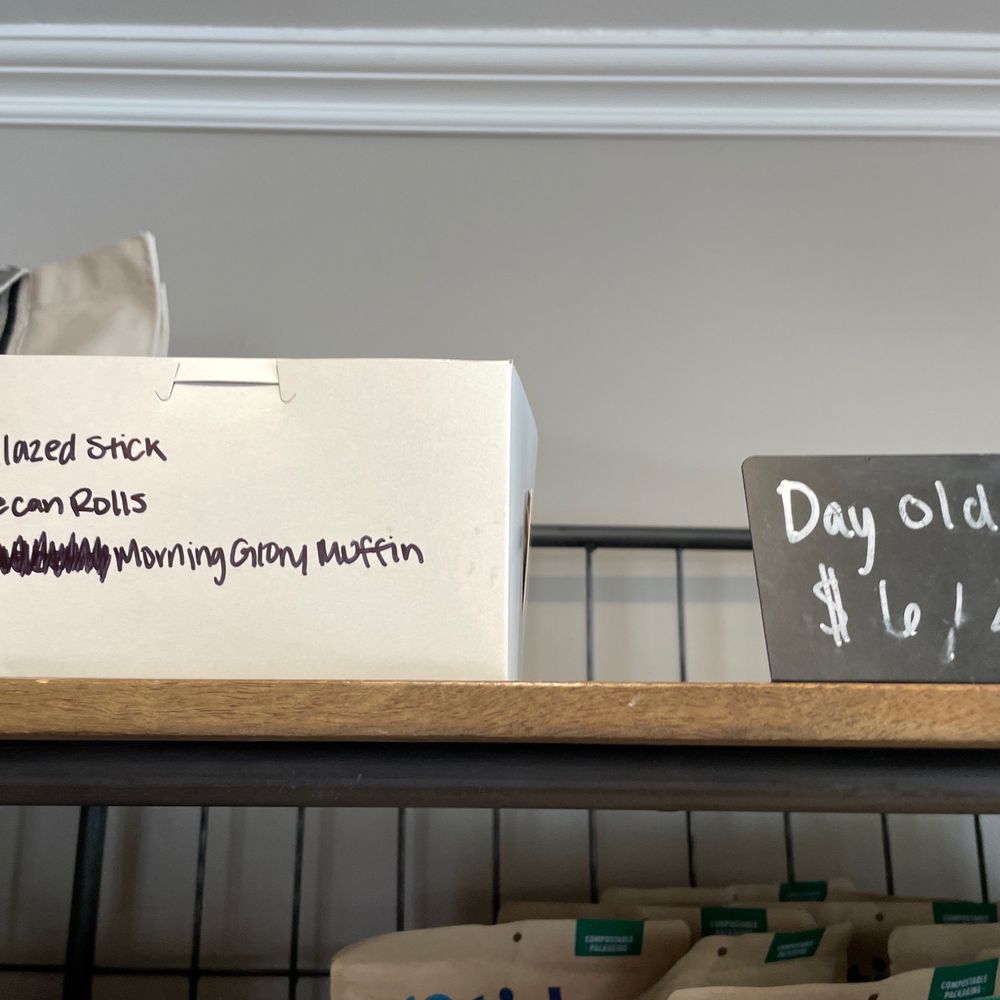 lazed Stick
ecan Rolls
Morning Glory Muffin
Day old
$6/
COMPOSTABLE
PACKAGING
COMPOSTABLE
COMPOSTABLE
COMPOSTABLE
COMPOSTABLE
PACKAGING